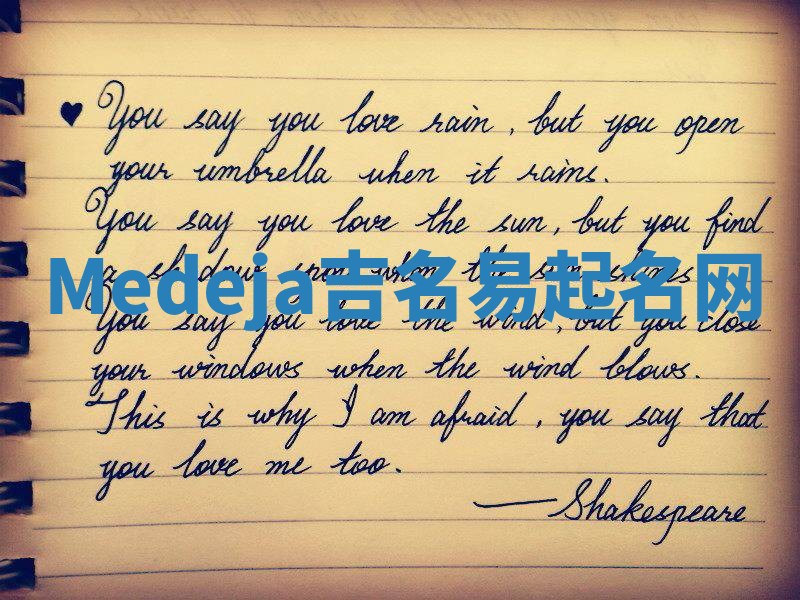 ♥ You say you love rain, but you open
your umbrella when it rains.
You say you love the sun, but you find
a shadow spot when the sun shines
Medeja吉名易起名网
You say you love the wind, but you close
your windows when the wind blows.
This is why I am afraid, you say that
you love me too.
—Shakespeare